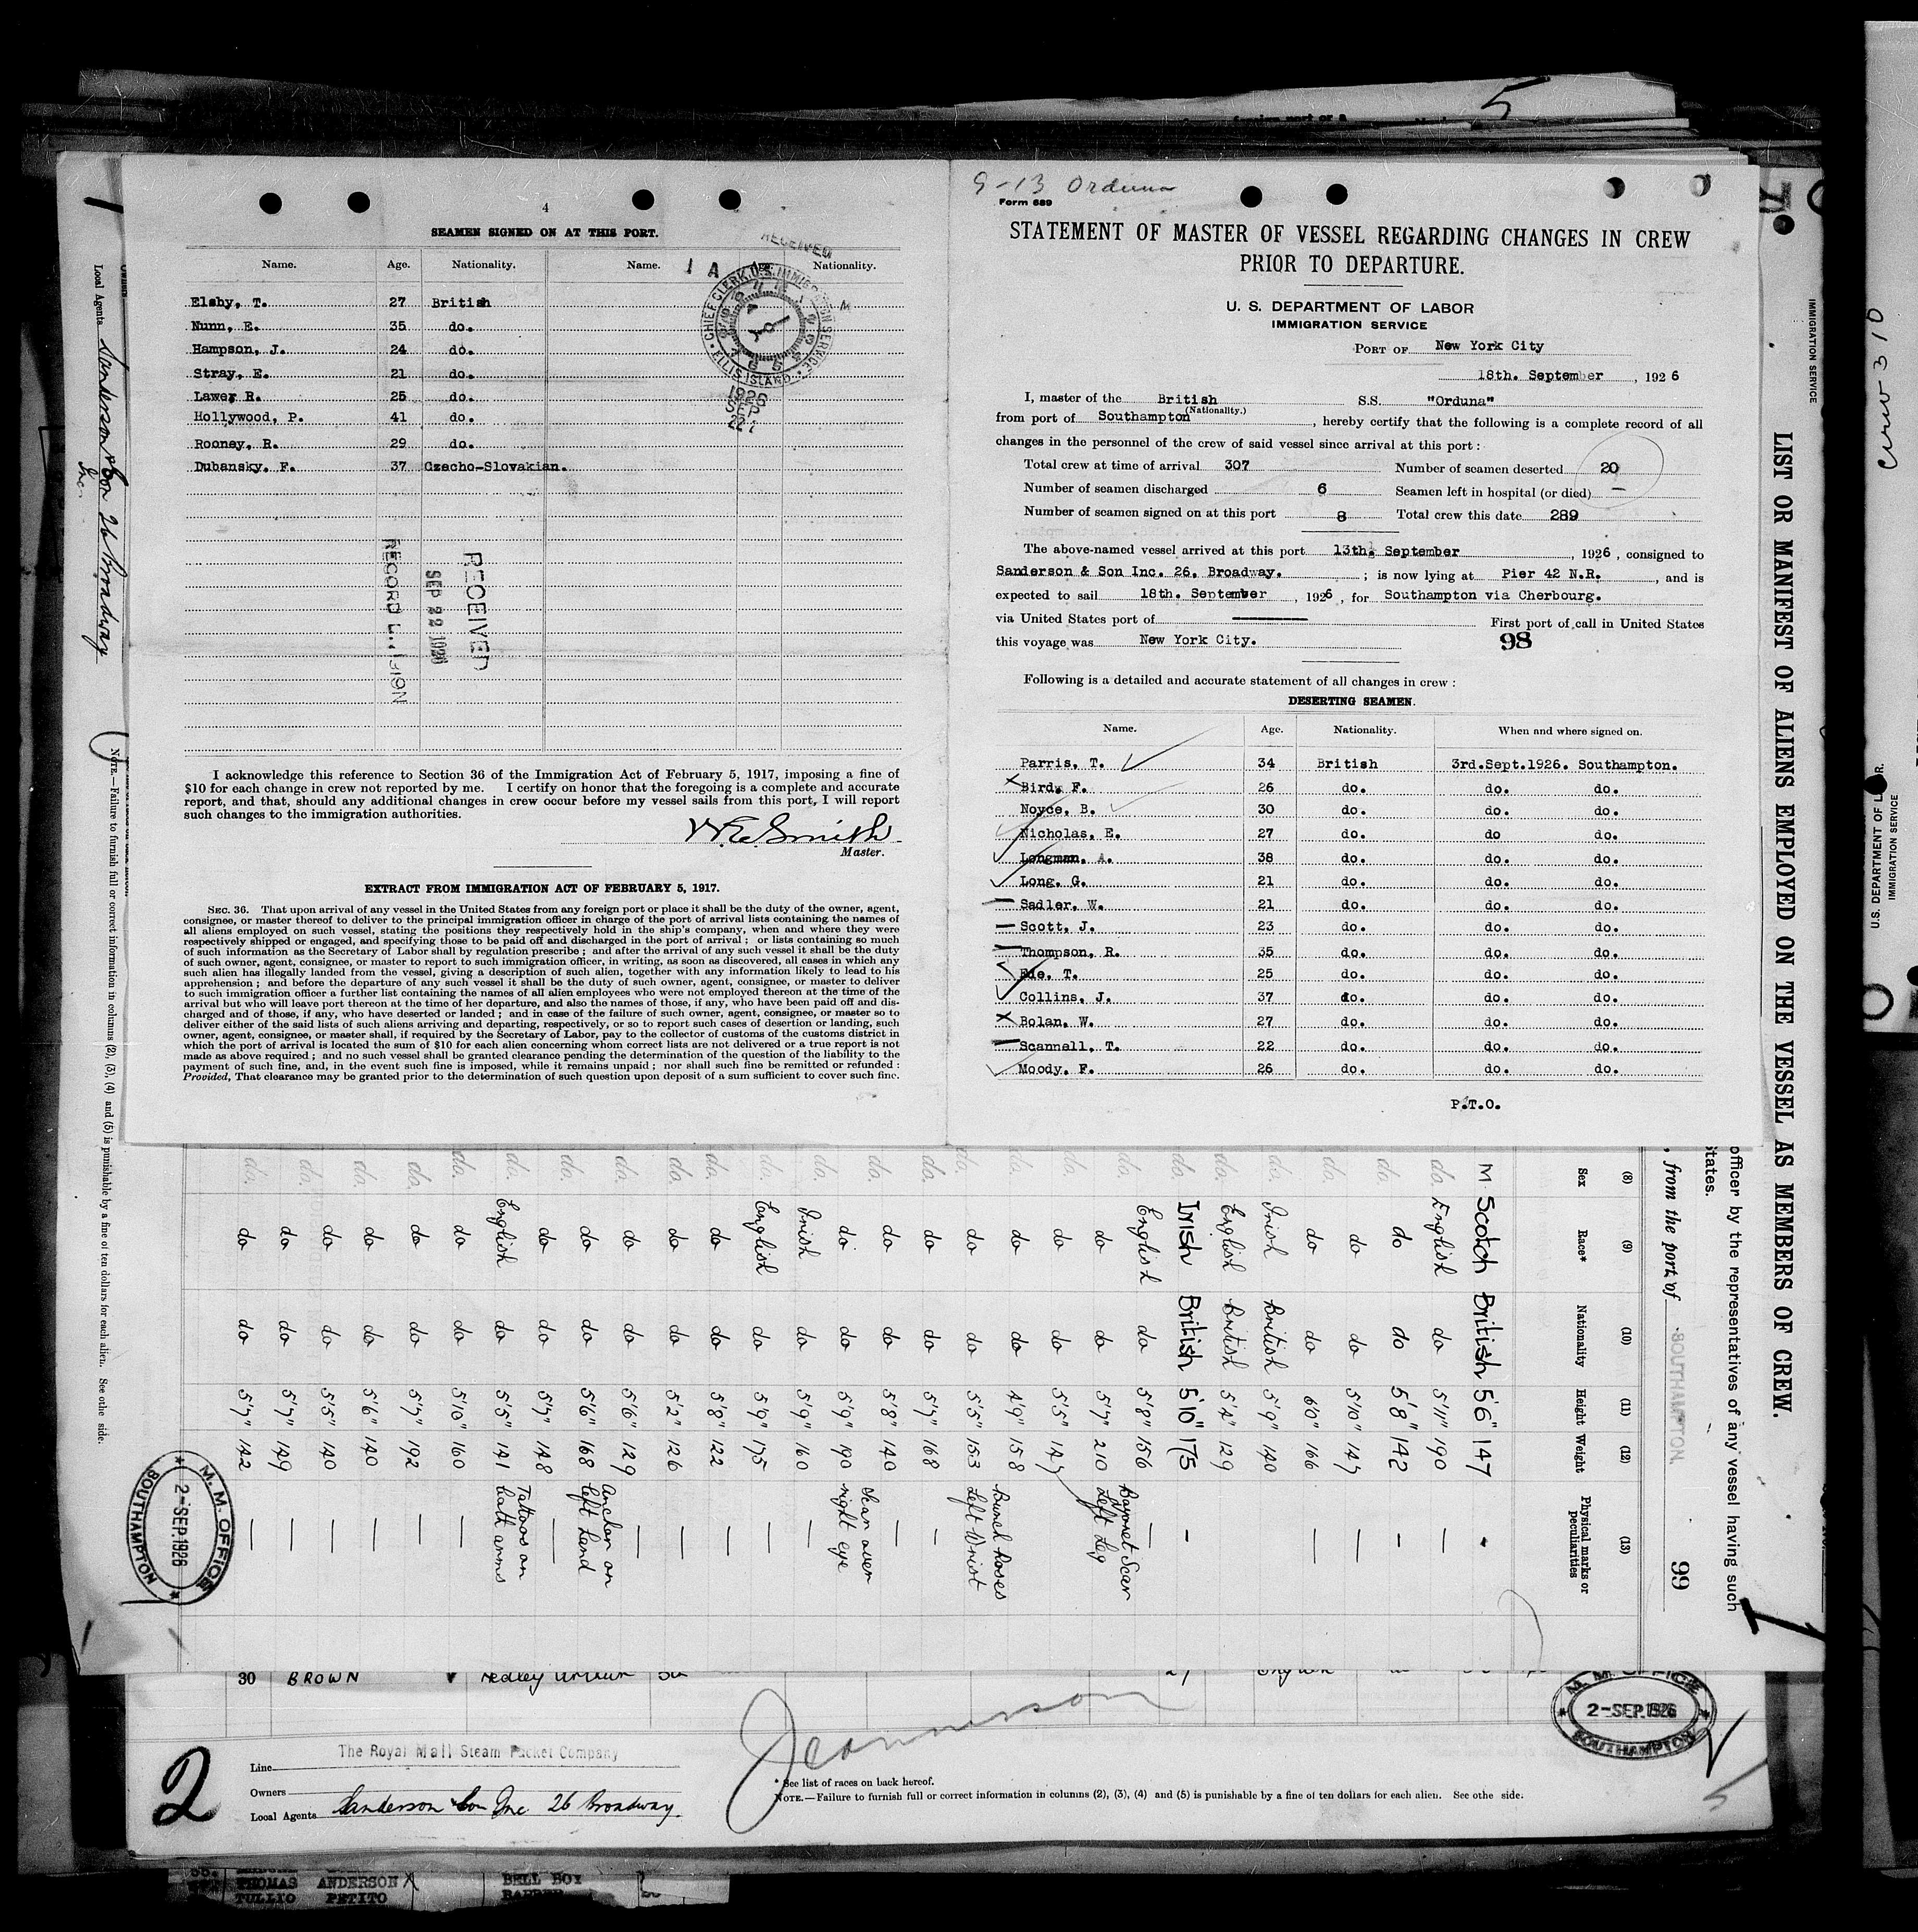 5
4
SEAMEN SIGNED ON AT THIS PORT.
Name. Age. Nationality. Name. Nationality.
Elsby, T. 27 British
Nunn, E. 35 do.
Hampson, J. 24 do.
Stray, E. 21 do.
Lawer R. 25 do.
Hollywood, P. 41 do.
Rooney, R. 29 do.
Dubansky. F. 37 Czecho-Slovakian.
RECEIVED
CHIEF CLERK, U.S. IMMIGRATION SERVICE
ELLIS ISLAND
1926
SEP
RECEIVED
SEP 22 1926
RECORD
I acknowledge this reference to Section 36 of the Immigration Act of February 5, 1917, imposing a fine of
$10 for each change in crew not reported by me. I certify on honor that the foregoing is a complete and accurate
report, and that, should any additional changes in crew occur before my vessel sails from this port, I will report
such changes to the immigration authorities.
W.E. Smith
Master.
EXTRACT FROM IMMIGRATION ACT OF FEBRUARY 5, 1917.
SEC. 36. That upon arrival of any vessel in the United States from any foreign port or place it shall be the duty of the owner, agent,
consignee, or master thereof to deliver to the principal immigration officer in charge of the port of arrival lists containing the names of
all aliens employed on such vessel, stating the positions they respectively hold in the ship's company, when and where they were
respectively shipped or engaged, and specifying those to be paid off and discharged in the port of arrival ; or lists containing so much
of such information as the Secretary of Labor shall by regulation prescribe ; and after the arrival of any such vessel it shall be the duty
of such owner, agent, consignee, or master to report to such immigration officer, in writing, as soon as discovered, all cases in which any
such alien has illegally landed from the vessel, giving a description of such alien, together with any information likely to lead to his
apprehension ; and before the departure of any such vessel it shall be the duty of such owner, agent, consignee, or master to deliver
to such immigration officer a further list containing the names of all alien employees who were not employed thereon at the time of the
arrival but who will leave port thereon at the time of her departure, and also the names of those, if any, who have been paid off and dis-
charged and of those, if any, who have deserted or landed ; and in case of the failure of such owner, agent, consignee, or master so to
deliver either of the said lists of such aliens arriving and departing, respectively, or so to report such cases of desertion or landing, such
owner, agent, consignee, or master shall, if required by the Secretary of Labor, pay to the collector of customs of the customs district in
which the port of arrival is located the sum of $10 for each alien concerning whom correct lists are not delivered or a true report is not
made as above required ; and no such vessel shall be granted clearance pending the determination of the question of the liability to the
payment of such fine, and, in the event such fine is imposed, while it remains unpaid ; nor shall such fine be remitted or refunded :
Provided, That clearance may be granted prior to the determination of such question upon deposit of a sum sufficient to cover such fine.
9-13 Orduna
Form 689
STATEMENT OF MASTER OF VESSEL REGARDING CHANGES IN CREW
PRIOR TO DEPARTURE.
U. S. DEPARTMENT OF LABOR
IMMIGRATION SERVICE
PORT OF New York City
18th. September , 1926
I, master of the British S.S. "Orduna"
(Nationality.)
from port of Southampton , hereby certify that the following is a complete record of all
changes in the personnel of the crew of said vessel since arrival at this port :
Total crew at time of arrival 307 Number of seamen deserted 20
Number of seamen discharged 6 Seamen left in hospital (or died) —
Number of seamen signed on at this port 8 Total crew this date 289
The above-named vessel arrived at this port 13th. September , 1926 , consigned to
Sanderson & Son Inc. 26, Broadway. ; is now lying at Pier 42 N.R. , and is
expected to sail 18th. September , 1926 , for Southampton via Cherbourg.
via United States port of ——— First port of call in United States
this voyage was New York City. 98
Following is a detailed and accurate statement of all changes in crew :
DESERTING SEAMEN.
Name. Age. Nationality. When and where signed on.
Parris, T. 34 British 3rd.Sept.1926. Southampton.
Bird, F. 26 do. do. do.
Noyce, B. 30 do. do. do.
Nicholas, E. 27 do. do do.
Longman, A. 38 do. do. do.
Long, G. 21 do. do. do.
Sadler, W. 21 do. do. do.
Scott, J. 23 do. do. do.
Thompson, R. 35 do. do. do.
Ede, T. 25 do. do. do.
Collins, J. 37 do. do. do.
Bolan, W. 27 do. do. do.
Scannell, T. 22 do. do. do.
Moody, F. 26 do. do. do.
P.T.O.
LIST OR MANIFEST OF ALIENS EMPLOYED ON THE VESSEL AS MEMBERS OF CREW.
IMMIGRATION SERVICE
officer by the representatives of any vessel having such
, from the port of SOUTHAMPTON. 99
(8) (9) (10) (11) (12) (13)
Sex Race* Nationality Height Weight Physical marks or peculiarities
M Scotch British 5'6" 147
do. English do 5'11" 190 —
do. do do 5'8" 142 —
do. do do 5'10" 147 —
do. do do 6'0" 166 —
do. Irish British 5'9" 140
do. English British 5'4" 129
do. Irish British 5'10" 175 -
do. English do 5'8" 156 —
do. do do 5'7" 210 Bayonet Scar Left Leg
do. do do 5'5" 147
do. do do 4'9" 158
do. do do 5'5" 153 Bunch Roses Left Wrist
do. do do 5'7" 168 —
do. do do 5'8" 140 —
do. do do 5'9" 190 Scar over right eye
do. Irish do 5'9" 160 —
do. English do 5'9" 175 —
do. do do 5'8" 122 —
do. do do 5'2" 126 —
do. do do 5'6" 129 —
do. do do 5'6" 168 Anchor on left hand
do. do do 5'7" 148 —
do. English do 5'5" 141 Tattoos on both arms
do do 5'10" 160 —
do. do do 5'7" 192 —
do. do do 5'6" 140 —
do do 5'5" 140 —
do. do do 5'7" 149 —
do. do do 5'7" 142 —
M. M. OFFICE
2-SEP.1926
SOUTHAMPTON
Local Agents Sanderson & Son Inc. 26 Broadway
NOTE.—Failure to furnish full or correct information in columns (2), (3), (4) and (5) is punishable by a fine of ten dollars for each alien. See othe side.
30 BROWN Hedley Arthur
Jeannerson
M. M. OFFICE
2-SEP.1926
SOUTHAMPTON
2
Line The Royal Mail Steam Packet Company
Owners
Local Agents Sanderson & Son Inc 26 Broadway.
* See list of races on back hereof.
NOTE.—Failure to furnish full or correct information in columns (2), (3), (4) and (5) is punishable by a fine of ten dollars for each alien. See othe side.
THOMAS ANDERSON BELL BOY
TULLIO PETITO BARBER
Crew 310
U.S. DEPARTMENT OF LABOR.
IMMIGRATION SERVICE